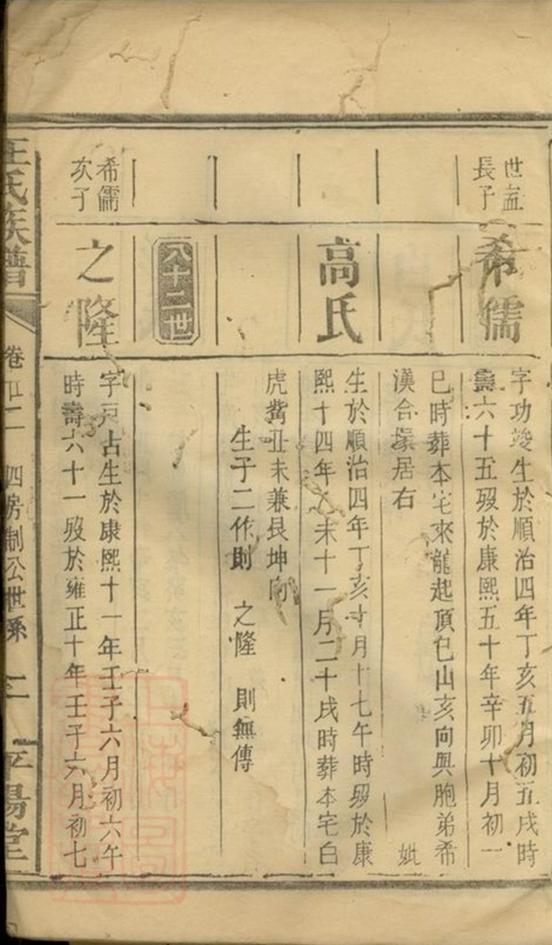 世孟長子
希儒
字功竣生於順治四年丁亥五月初五戌時
壽六十五歿於康熙五十年辛卯十月初一
巳時葬本宅來龍起頂包山亥向與胞弟希
漢合塚居右　妣
高氏
生於順治四年丁亥十月十七午時歿於康
熙十四年乙未十一月二十戌時葬本宅白
虎嘴丑未兼艮坤向
生子二作則　之隆　則無傳
八十二世
希儒次子
之隆
字占生於康熙十一年壬子六月初六午
時壽六十一歿於雍正十年壬子六月初七
王氏族譜
卷　二　四房制公世系　二　平陽堂